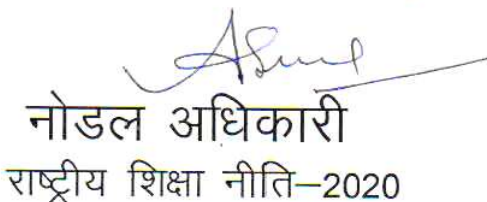 नोडल अधिकारी
राष्ट्रीय शिक्षा नीति–2020